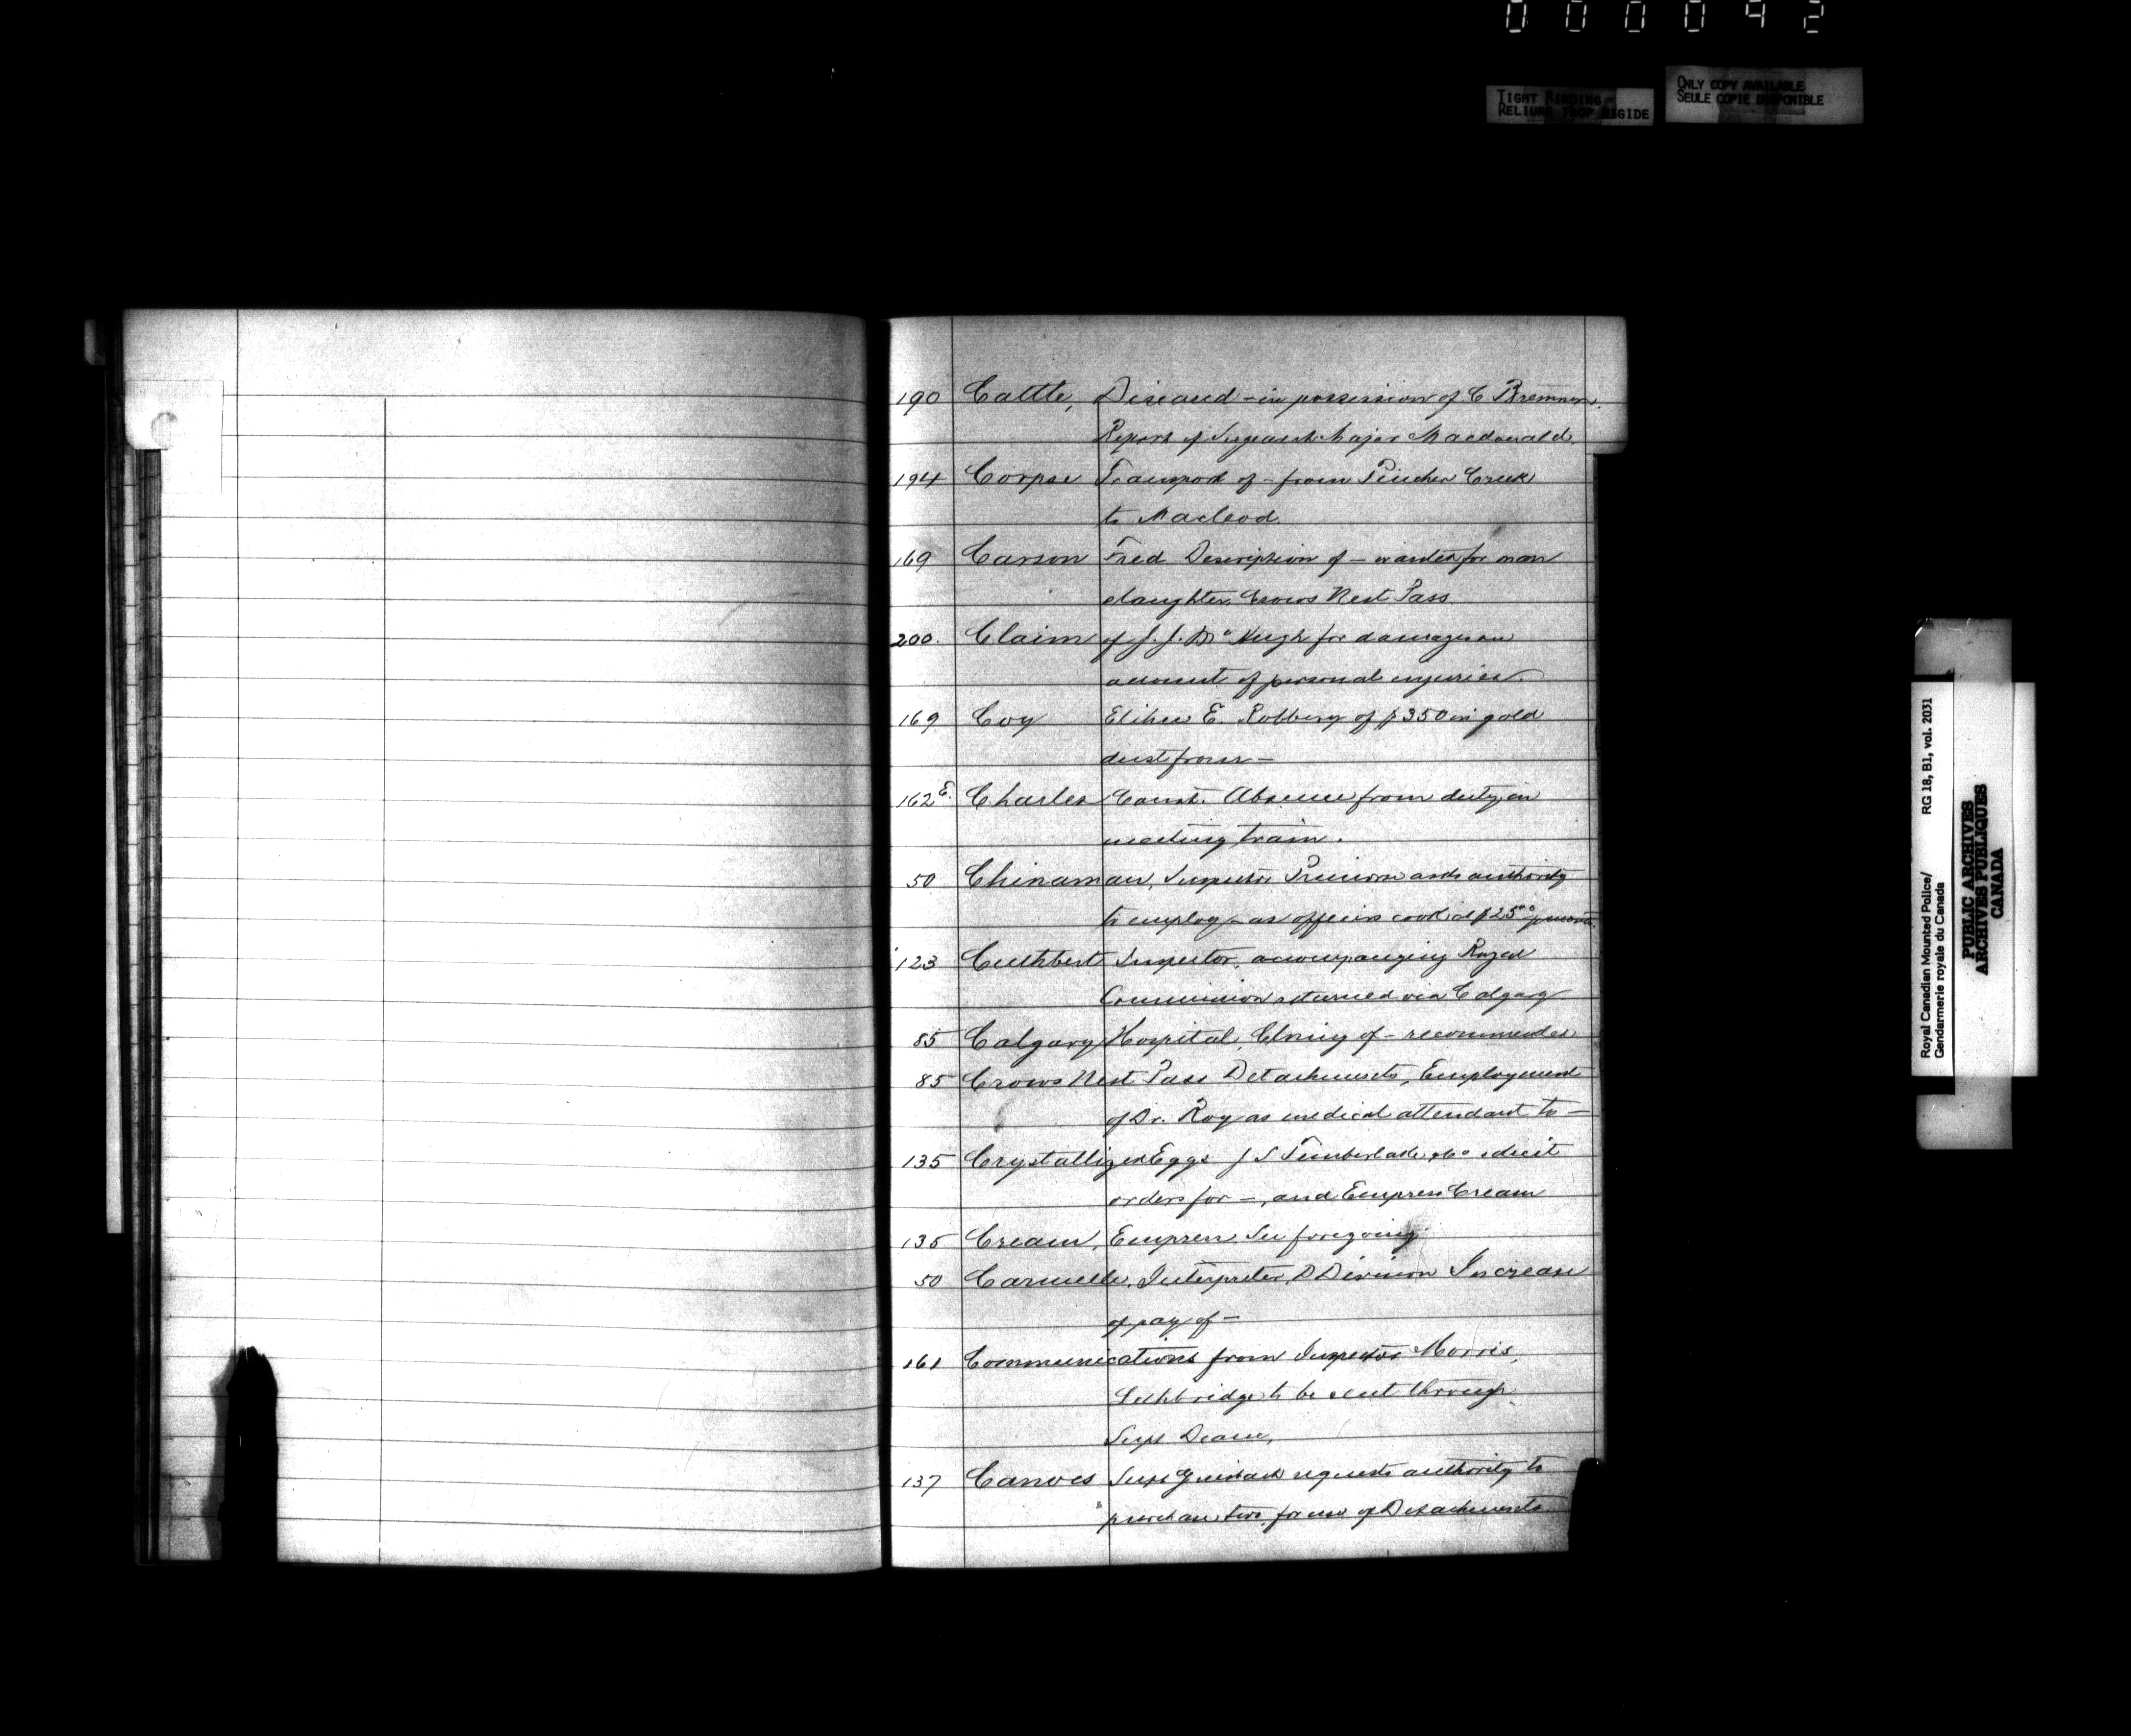 000042
TIGHT BINDING
RELIURE TROP RIGIDE
ONLY COPY AVAILABLE
SEULE COPIE DISPONIBLE
190 Cattle, Diseased - in possession of C Bremner.
Report of Sergeant Major Macdonald.
194 Corpse Transport of - from Pincher Creek
to Macleod.
169 Carson Fred Description of - wanted for man
slaughter, Crows Nest Pass.
200. Claim of J. J. McHugh for damages on
account of personal injuries.
169 Coy Elihu E. Robbery of $350 in gold
dust from -
162 E. Charles Const. Absence from duty in
meeting train.
50 Chinaman, Inspector Primrose asks authority
to employ - as officers cook at $25.00 per month.
123 Cuthbert Inspector, accompanying Royal
Commission returned via Calgary
85 Calgary Hospital, of - recommended
85 Crows Nest Pass Detachments, Employment
of Dr. Roy as medical attendant to -
135 Crystallized Eggs J S Timberlake &Co solicit
orders for -, and Empress Cream
135 Cream, Empress. See foregoing.
50 Interpreter, D Division Increase
of pay of -
161 Communications from Inspector Morris,
Lethbridge to be sent through
Supt Deane,
137 Canoes Supt Griesbach requests authority to
purchase two, for use of Detachments
Royal Canadian Mounted Police/
Gendarmerie royale du Canada
RG 18, B1, vol. 2031
PUBLIC ARCHIVES
ARCHIVES PUBLIQUES
CANADA